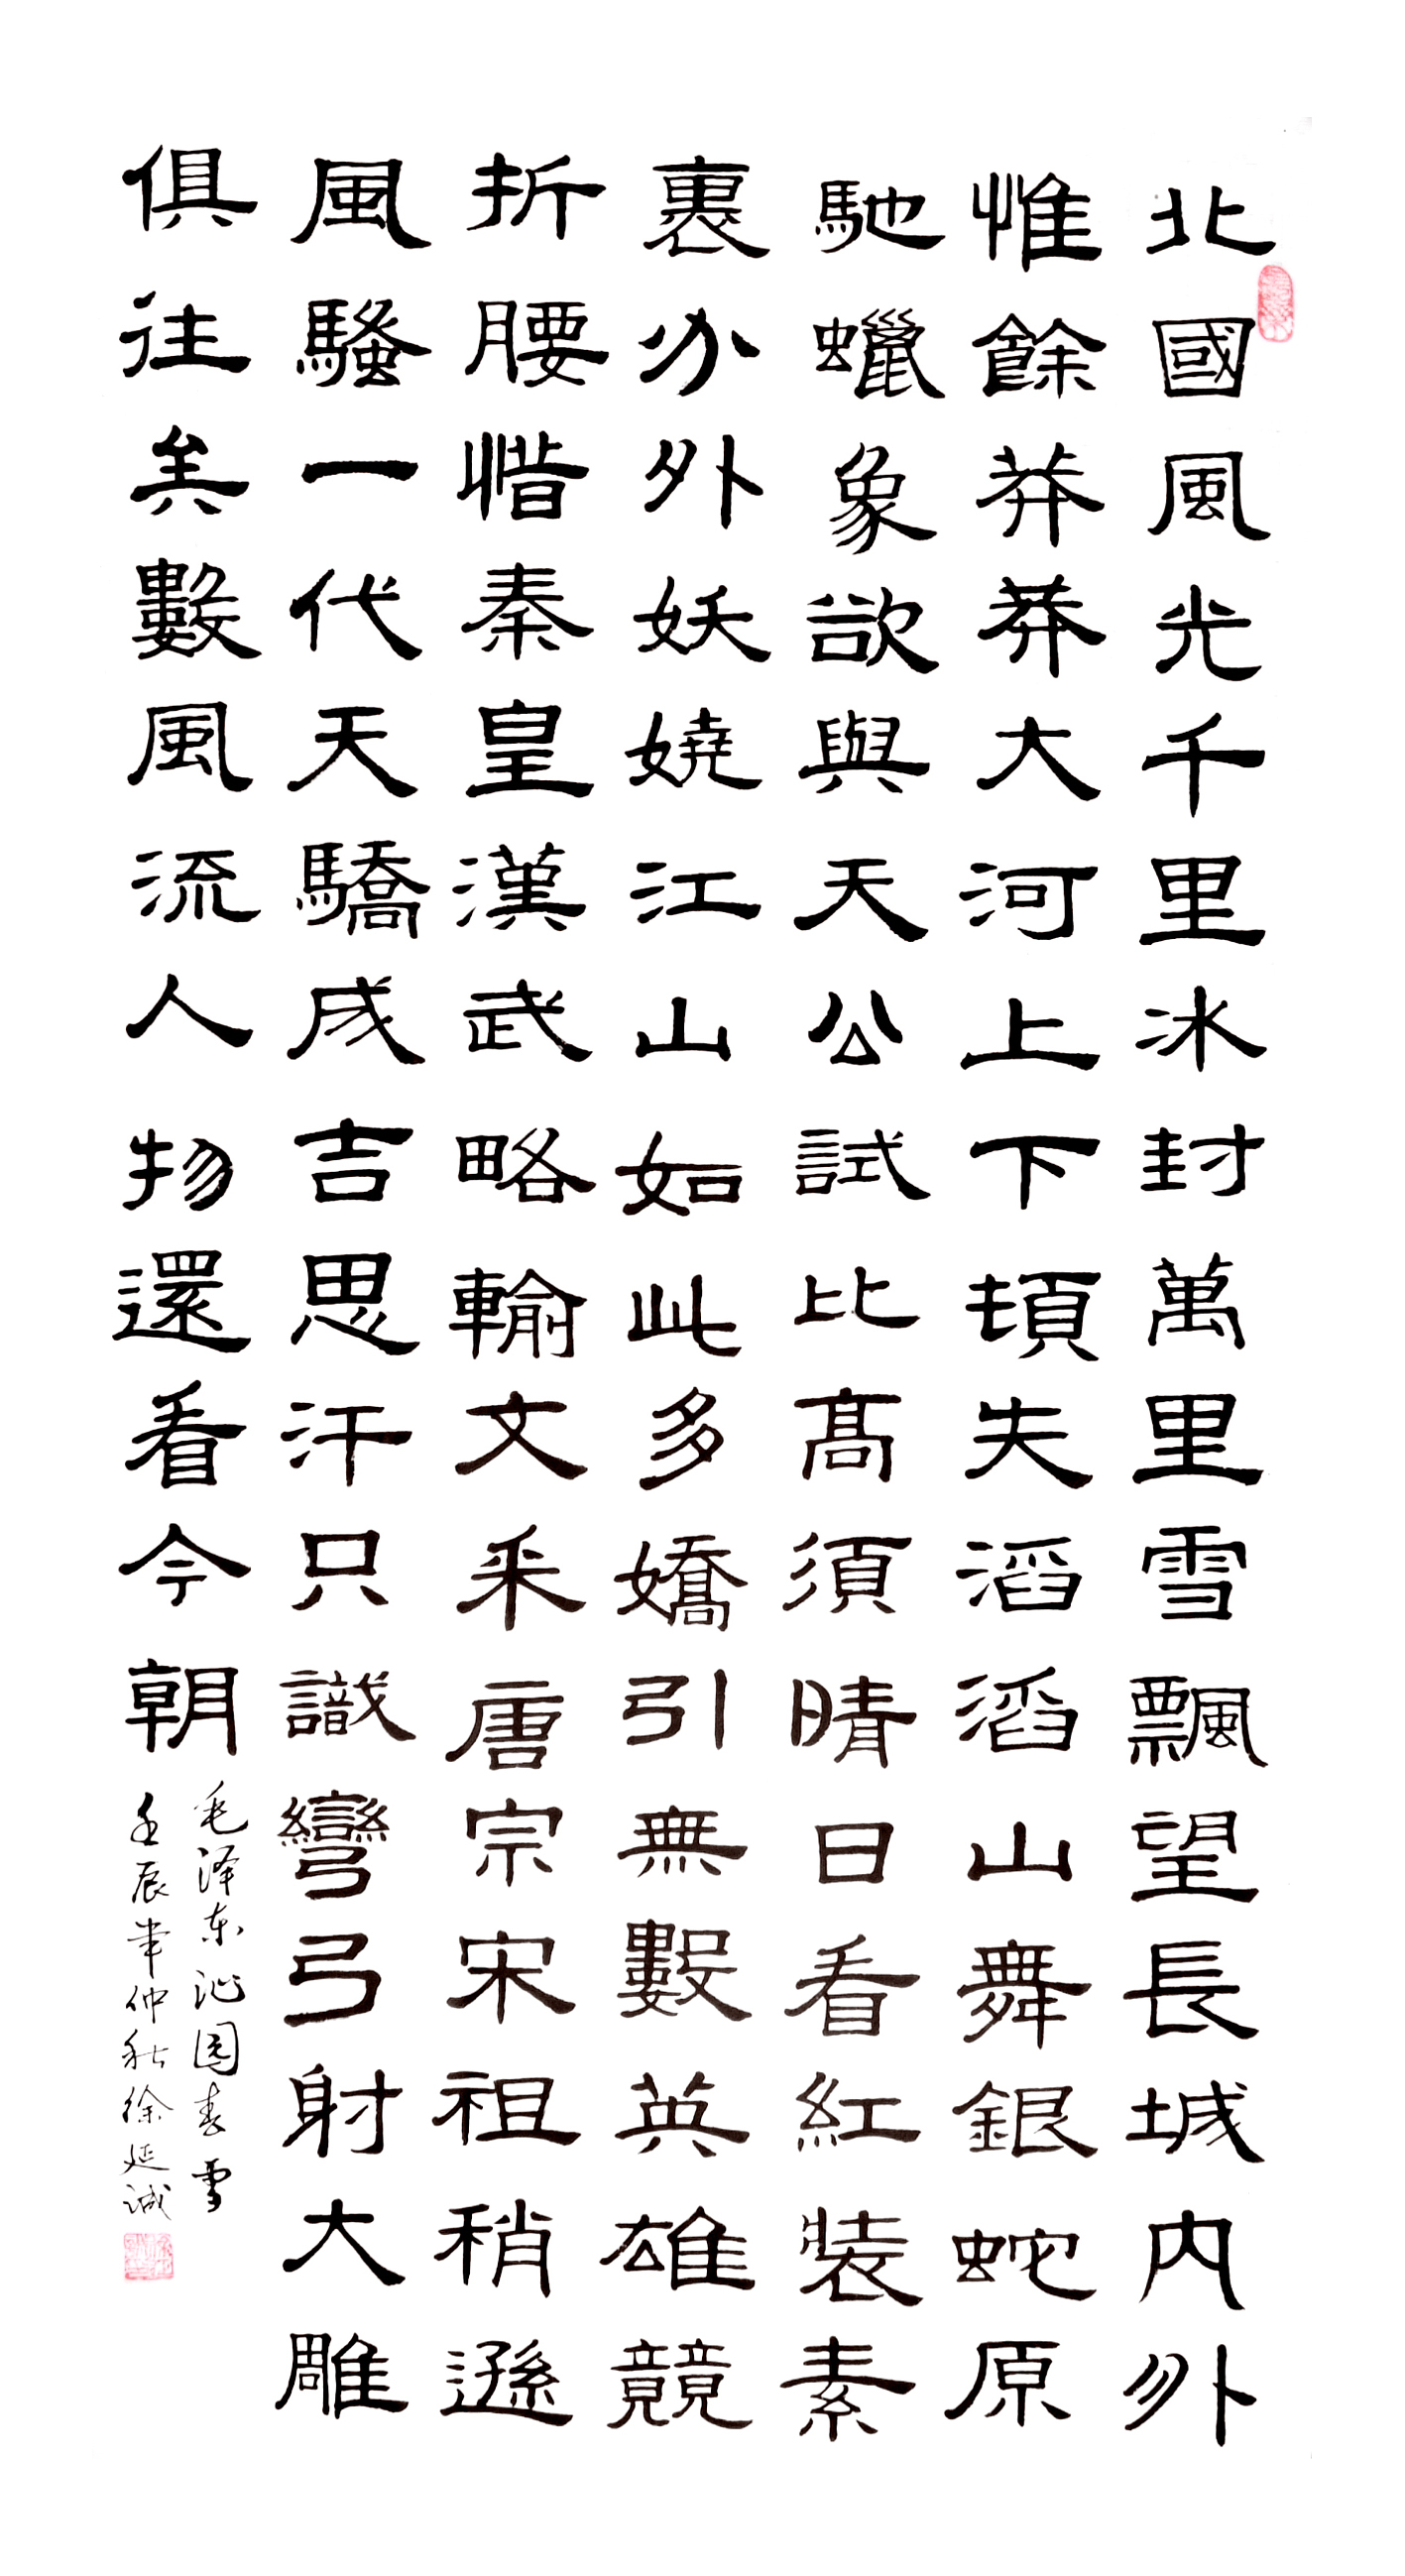 北國風光千里冰封萬里雪飄望長城內外
惟餘莽莽大河上下頓失滔滔山舞銀蛇原
馳蠟象欲與天公試比髙須晴日看紅裝素
裹分外妖嬈江山如此多嬌引無數英雄競
折腰惜秦皇漢武略輸文采唐宗宋祖稍遜
風騷一代天驕成吉思汗只識彎弓射大雕
俱往矣數風流人物還看今朝
毛泽东沁园春雪
壬辰年仲秋徐延诚